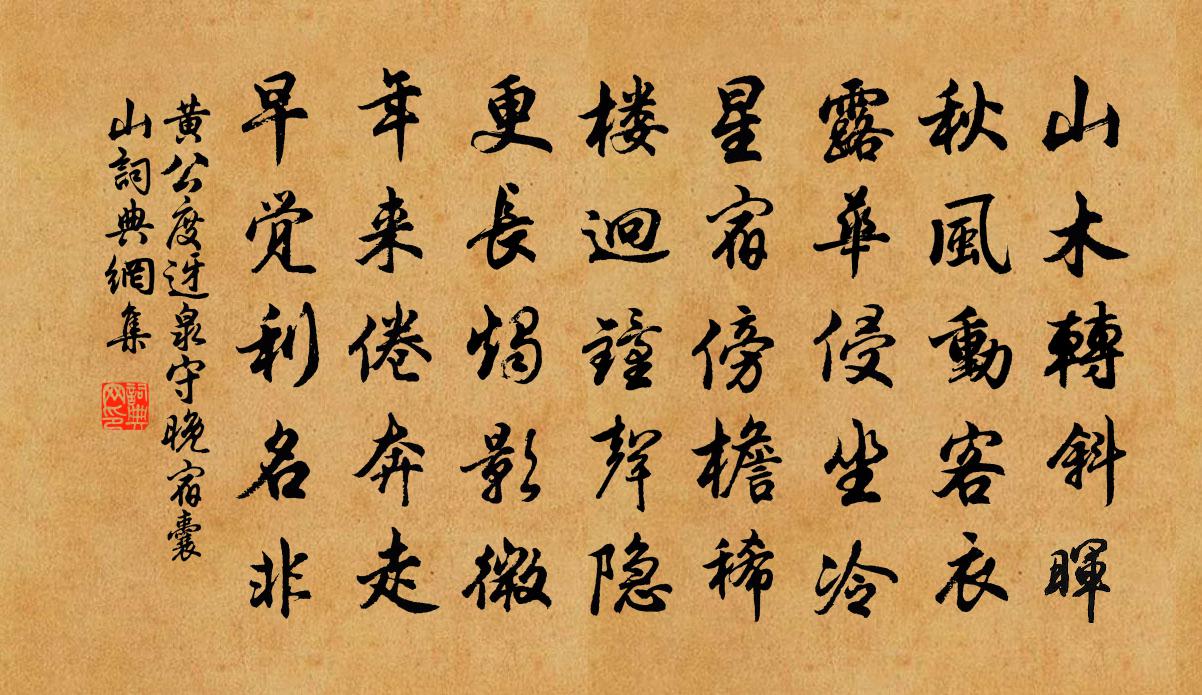 山木轉斜暉
秋風動客衣
露華侵坐冷
星宿傍檐稀
楼迥鐘聲隐
更長燭影微
年来倦奔走
早觉利名非
黄公度迓泉守晚宿囊
山詞典網集
詞典
网印